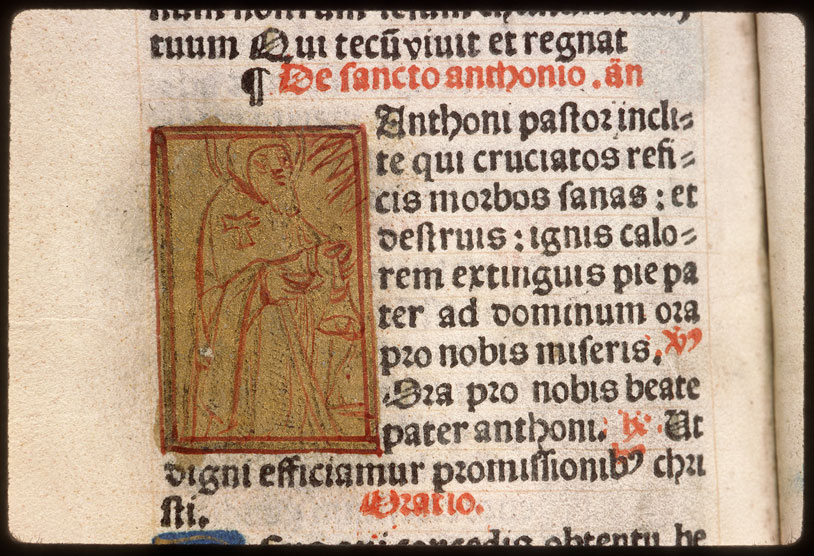 tuum Qui tecū viuit et regnat
¶ De sancto anthonio . än
Anthoni pastor incli⸗
te qui cruciatos refi⸗
cis morbos sanas : et
destruis : ignis calo⸗
rem extinguis pie pa
ter ad dominum ora
pro nobis miseris.
Ora pro nobis beate
pater anthoni. Ut
digni efficiamur promissionibꝰ chri
sti. Oratio.
concedis obtentu be